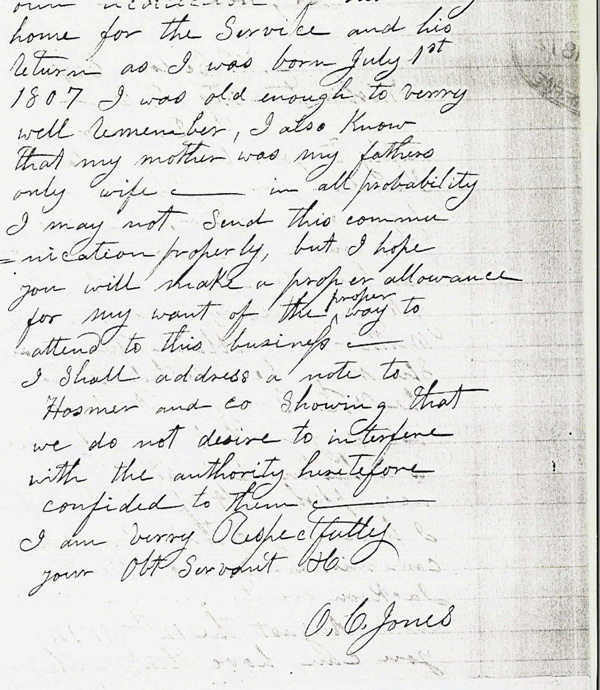 own recollection
home for the Service and his
return as I was born July 1st
1807 I was old enough to verry
well remember, I also Know
that my mother was my fathers
only wife — in all probability
I may not Send this commu
=nication properly, but I hope
you will make a proper allowance
for my want of the proper way to
attend to this business —
I Shall address a note to
Hosmer and co Showing that
we do not desire to interfere
with the authority heretofore
confided to them —
I am verry Respectfully
your Obt Servant &c
O. C. Jones